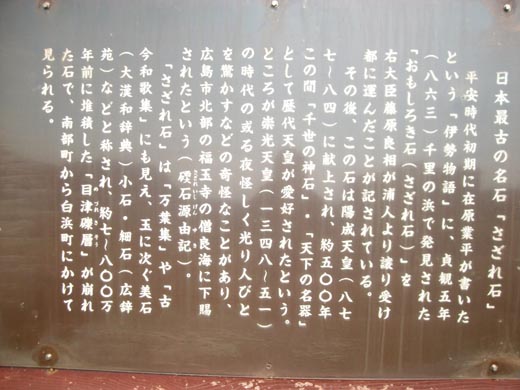 日本最古の名石「さざれ石」
平安時代初期に在原業平が書いた
という「伊勢物語」に、貞観五年
(八六三)千里の浜で発見された
「おもしろき石(さざれ石)」を
右大臣藤原良相が浦人より譲り受け
都に運んだことが記されている。
その後、この石は陽成天皇(八七
七〜八四)に献上され、約五〇〇年
この間「千世の神石」・「天下の名器」
として歴代天皇が愛好されたという。
ところが崇光天皇(一三四八〜五一)
の時代の或る夜怪しく光り人びと
を驚かすなどの奇怪なことがあり、
広島市北部の福王寺の僧良海に下賜
されたという(礫石源由記)。
「さざれ石」は「万葉集」や「古
今和歌集」にも見え、玉に次ぐ美石
(大漢和辞典)小石・細石(広辞
苑)などと称され、約七〜八〇〇万
年前に堆積した「目津礫層」が崩れ
た石で、南部町から白浜町にかけて
見られる。